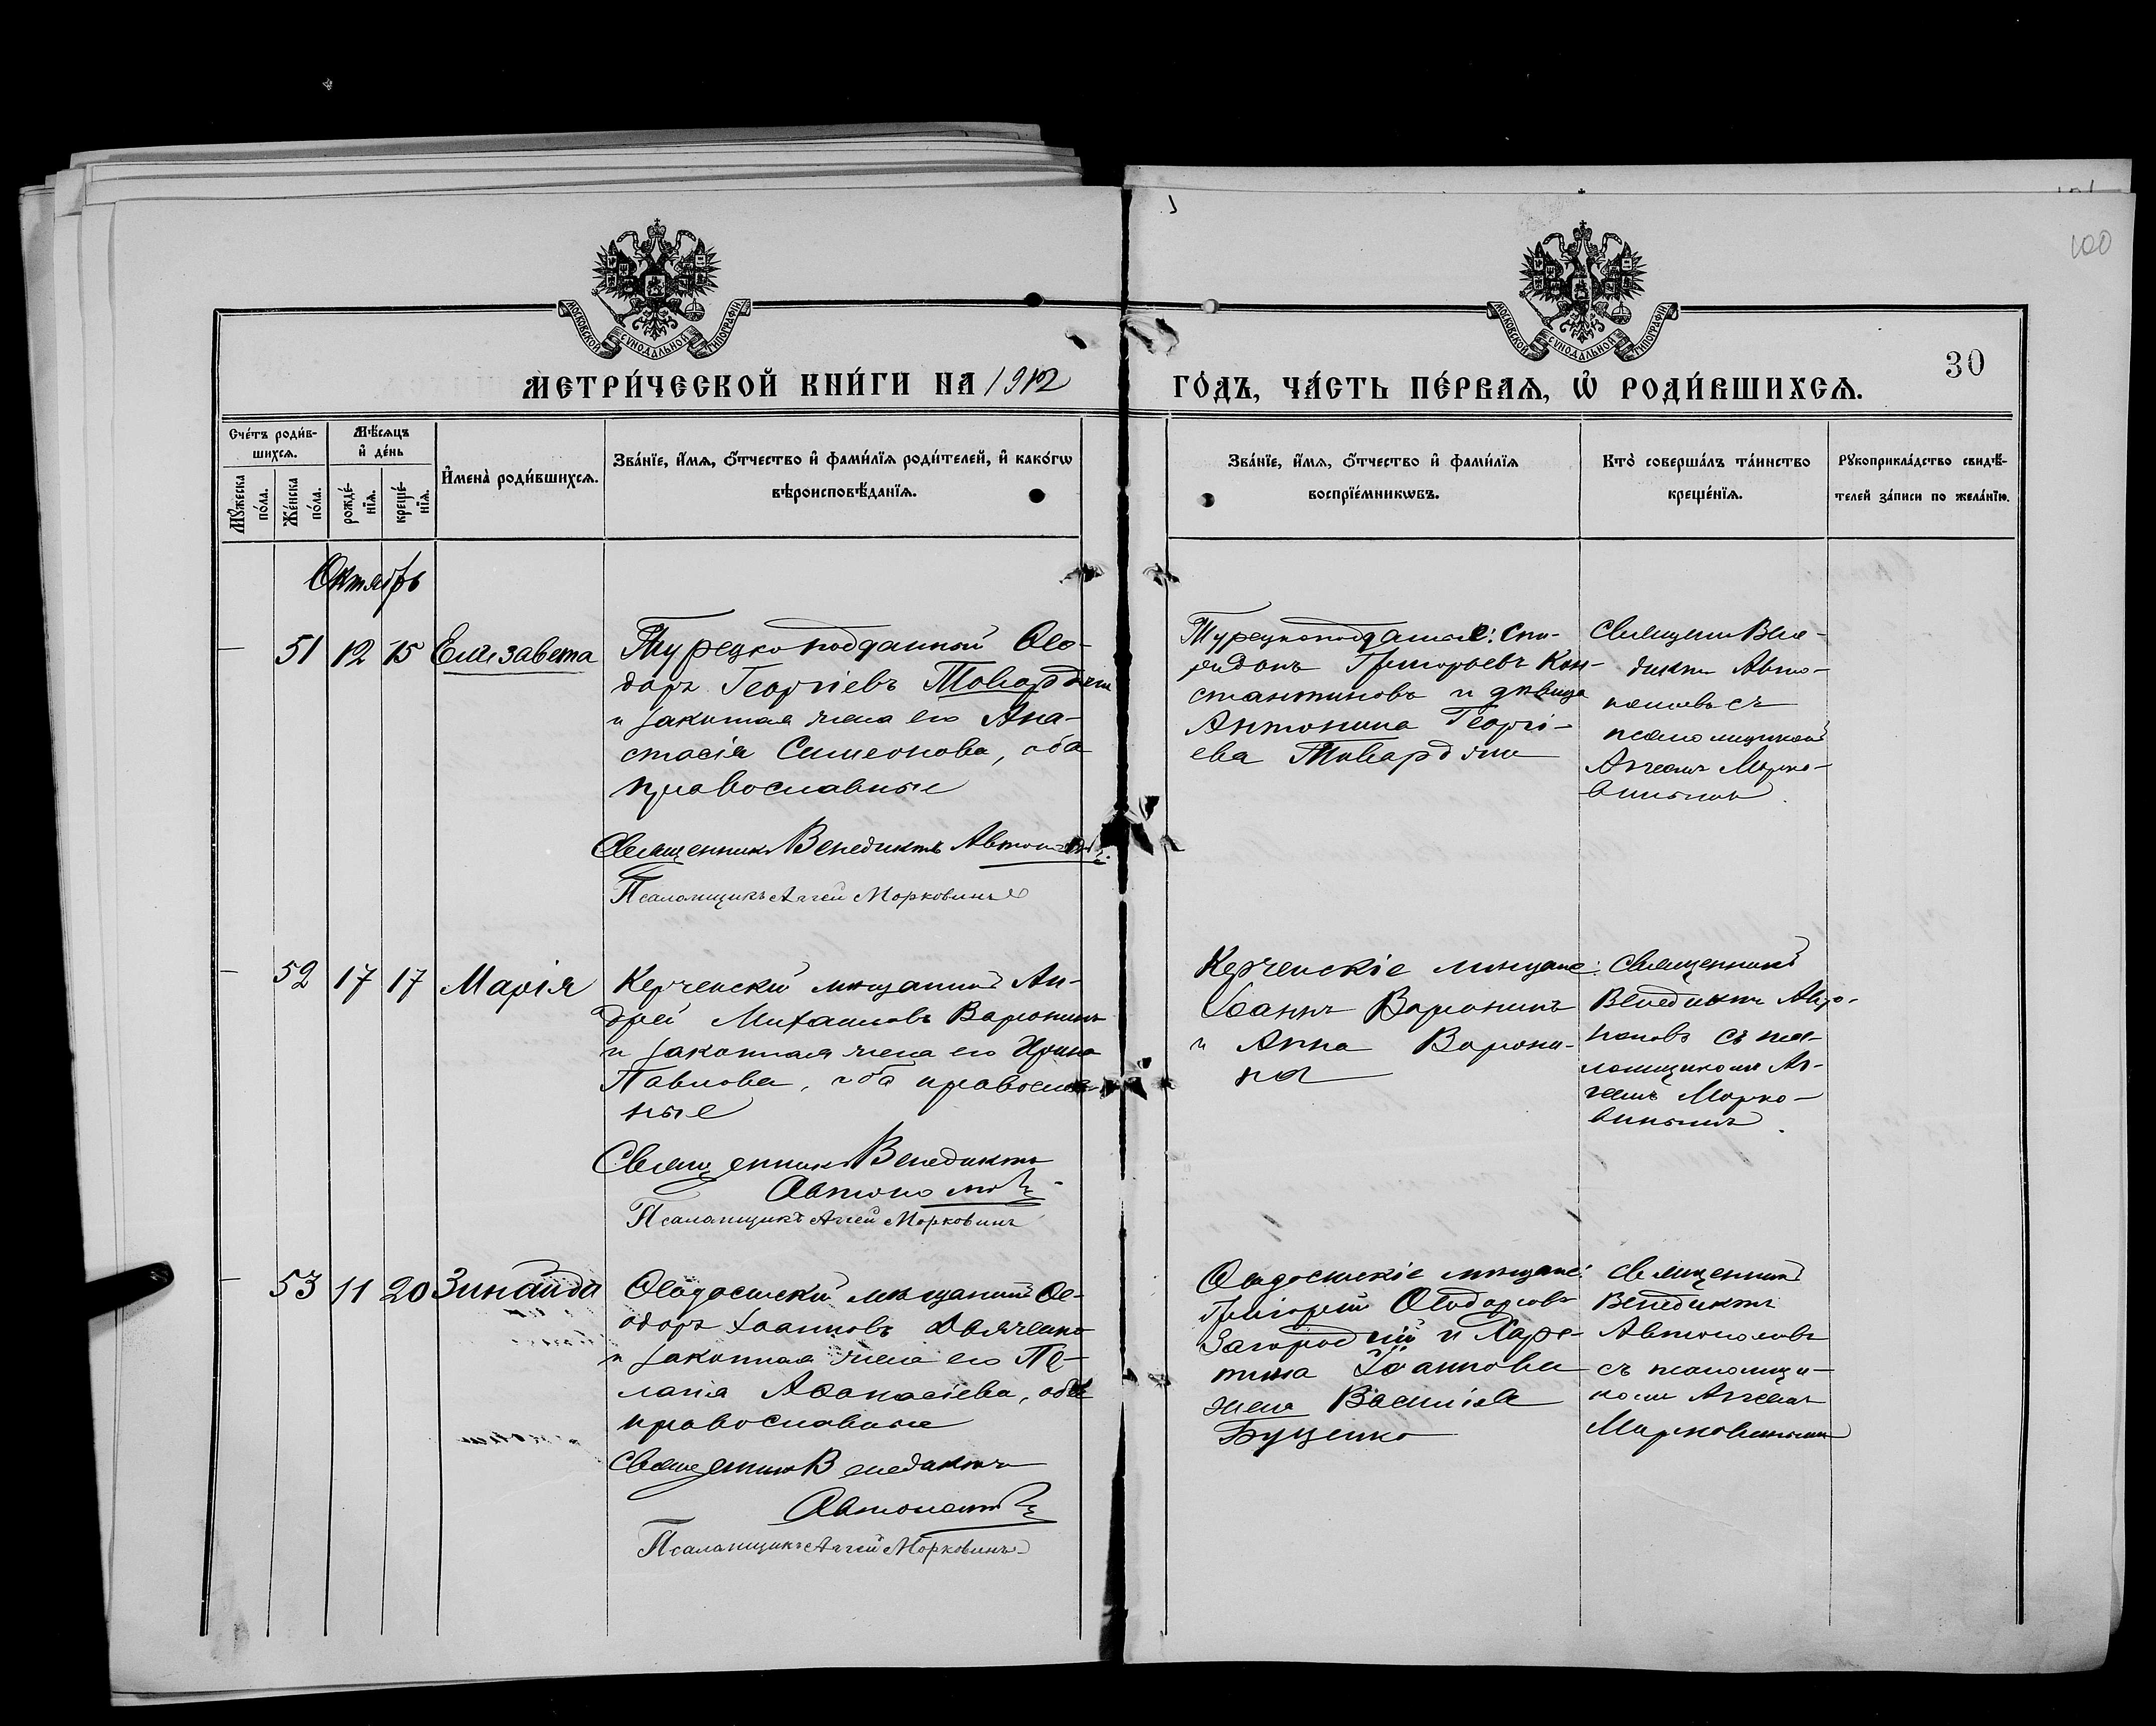 100
МОСКОВСКОЙ СУНОДАЛЬНОЙ ТИПОГРАФІИ
МОСКОВСКОЙ СУНОДАЛЬНОЙ ТИПОГРАФІИ
30
МЕТРИ́ЧЕСКОЙ КНИ́ГИ НА 1912
ГО́ДЪ, ЧА́СТЬ ПЕ́РВАѦ, Ѡ҆ РОДИ́ВШИХСѦ.
Сче́тъ роди́в-
шихсѧ.
Мꙋ́жеска по́ла.
Же́нска по́ла.
Мѣ́сѧцъ
и҆ де́нь
рожде́-
нїѧ.
креще́-
нїѧ.
И҆мена̀ роди́вшихсѧ.
Зва́нїе, и҆́мѧ, ѻ҆́тчество и҆ фами́лїѧ роди́телей, и҆ како́гѡ
вѣроисповѣ́данїѧ.
Зва́нїе, и҆́мѧ, ѻ҆́тчество и҆ фами́лїѧ
воспрїе́мникѡвъ.
Кто̀ соверша́лъ та́инство
креще́нїѧ.
Рꙋкоприкла́дство свидѣ́-
телей за́писи по жела́нїю.
Октябрь
— 51 12 15 Елизавета
Турецкоподданный Ѳео-
доръ Георгіевъ
и законная жена его Ана-
стасія Симеонова, оба
православные
Священникъ Венедиктъ Автономовъ
Псаломщикъ Аггей Морковинъ
Турецкоподданные: Спи-
ридонъ Григорьевъ Кон-
стантиновъ и дѣвица
Антонина Георгі-
ева
Священ. Вене-
диктъ Авто-
номовъ съ
псаломщикомъ
Аггеемъ Морко-
винымъ.
— 52 17 17 Марія
Керченскій мѣщанинъ Ан-
дрей Михаиловъ Воронинъ
и законная жена его Ирина
Павлова, оба православ-
ные
Священникъ Венедиктъ
Автономовъ
Псаломщикъ Аггей Морковинъ
Керченскіе мѣщане:
Іоаннъ Воронинъ
и Анна Ворони-
на
Священникъ
Венедиктъ Авто-
номовъ съ пса-
ломщикомъ Аг-
геемъ Морко-
винымъ.
— 53 11 20 Зинаида
Ѳеодосійскій мѣщанинъ Ѳе-
одоръ Іоанновъ Дьяченко
и законная жена его Пе-
лагія Аѳанасіева, оба
православные
Священникъ Венедиктъ
Автономовъ
Псаломщикъ Аггей Морковинъ
Ѳеодосійскіе мѣщане:
Григорій Ѳеодоровъ
Загородній и Хари-
тина Іоаннова
жена Василія
Буценко
Священникъ
Венедиктъ
Автономовъ
съ псаломщи-
комъ Аггеемъ
Морковинымъ